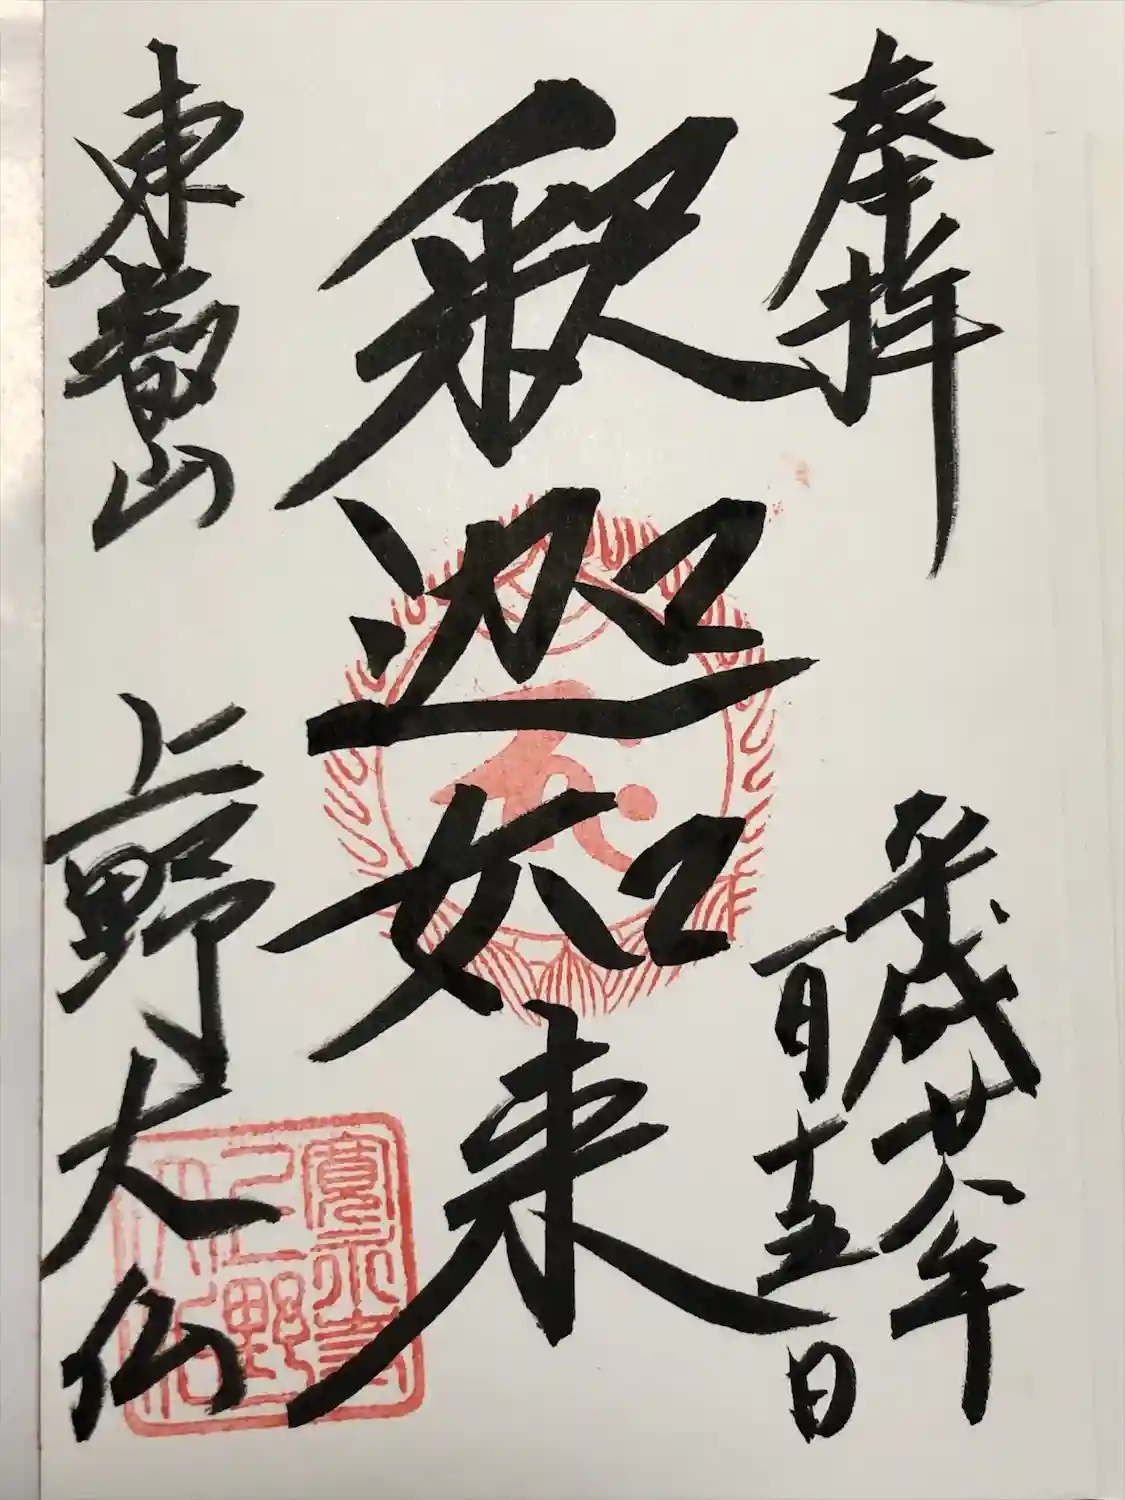 奉拝
平成廿八年
一月十五日
釈迦如来
東叡山
上野大仏
寛永寺
上野
大仏